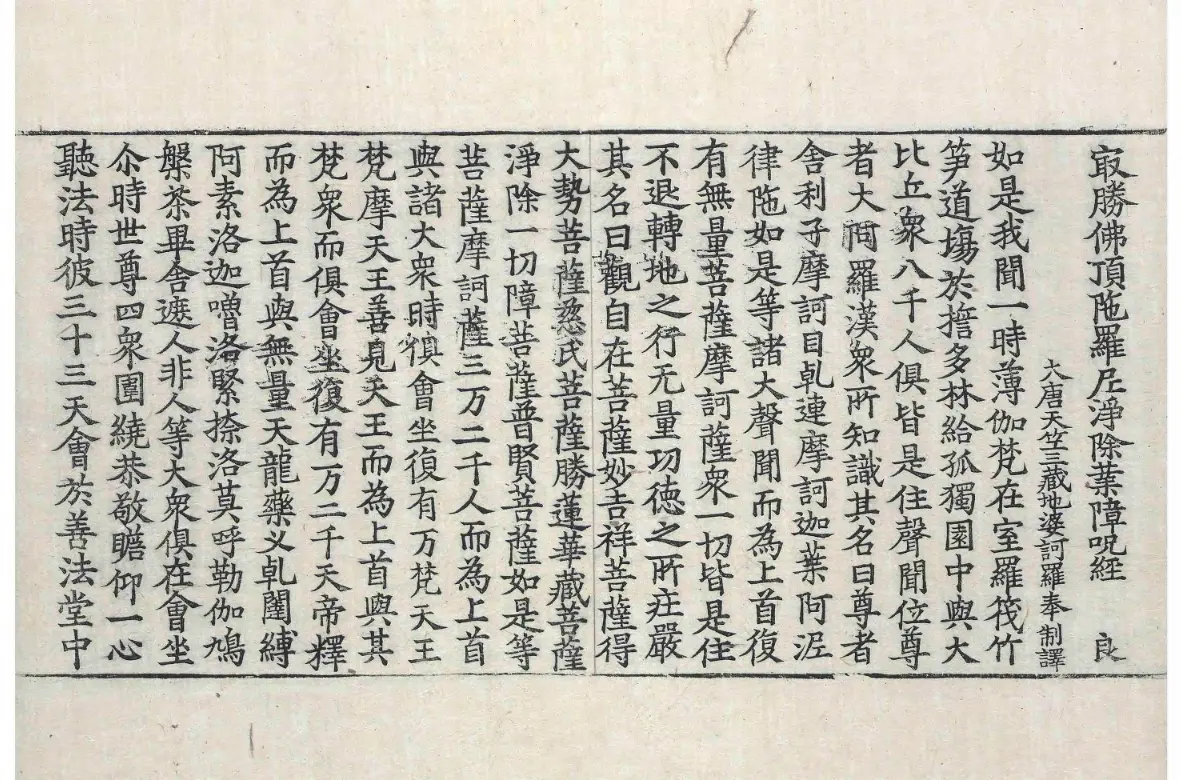 㝡勝佛頂陁羅尼淨除業障呪經 良
大唐天竺三藏地婆訶羅奉制譯
如是我聞一時薄伽梵在室羅筏竹
笋道塲於擔多林給孤獨園中與大
比丘衆八千人俱皆是住聲聞位尊
者大阿羅漢衆所知識其名曰尊者
舍利子摩訶目乹連摩訶迦葉阿泥
律陁如是等諸大聲聞而為上首復
有無量菩薩摩訶薩衆一切皆是住
不退轉地之行无量功徳之所莊嚴
其名曰觀自在菩薩妙吉祥菩薩得
大勢菩薩慈氏菩薩勝蓮華藏菩薩
淨除一切障菩薩普賢菩薩如是等
菩薩摩訶薩三万二千人而為上首
與諸大衆時俱會坐復有万梵天王
梵摩天王善見天王而為上首與其
梵衆而俱會坐復有万二千天帝釋
而為上首與無量天龍藥叉乹闥縛
阿素洛迦嚕洛緊捺洛莫呼勒伽鳩
槃茶畢舎遮人非人等大衆俱在會坐
尒時世尊四衆圍繞恭敬瞻仰一心
聽法時彼三十三天會於善法堂中